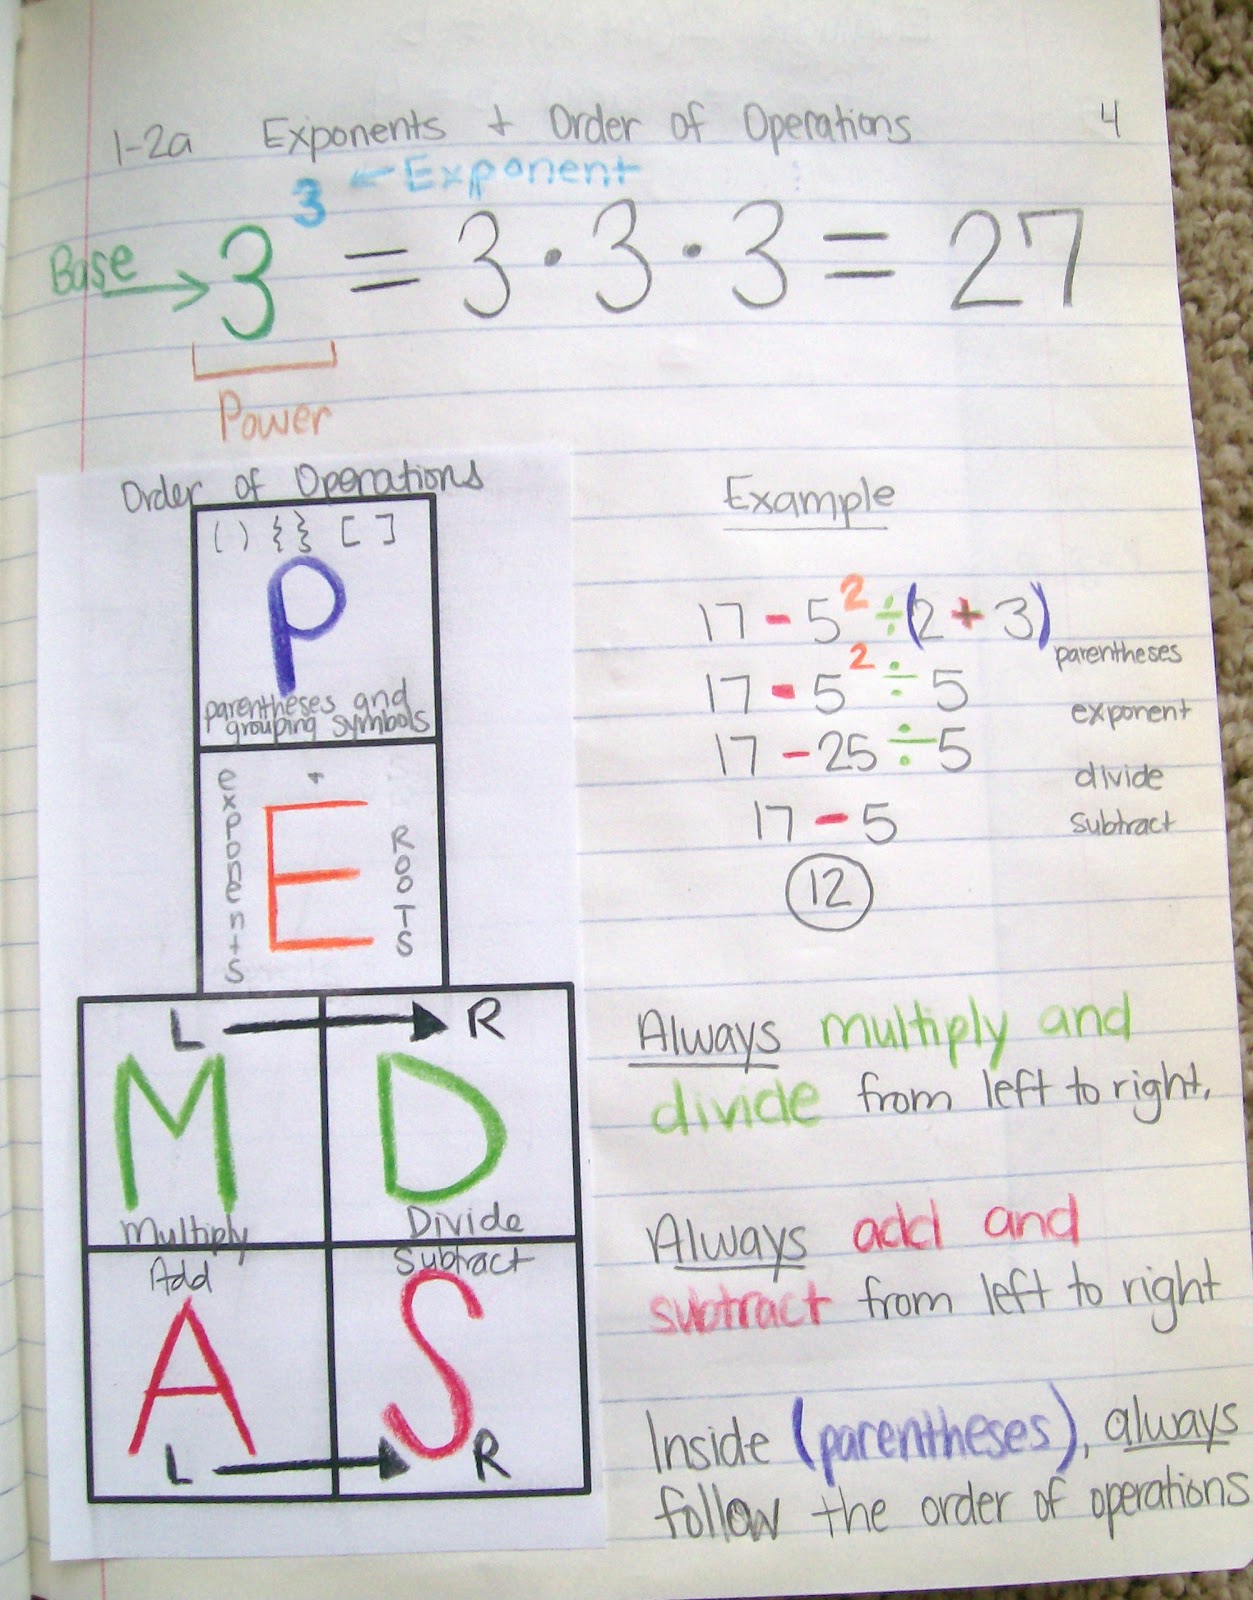 1-2a Exponents + Order of Operations 4
3 ← Exponent
Base → 3³ = 3 · 3 · 3 = 27
Power
Order of Operations
( ) { } [ ]
P
parentheses and
grouping symbols
exponents + ROOTS
E
L → R
M D
Multiply Divide
Add Subtract
A S
L → R
Example
17 - 5² ÷ (2 + 3)
parentheses
17 - 5² ÷ 5
exponent
17 - 25 ÷ 5
divide
17 - 5
subtract
12
Always multiply and
divide from left to right.
Always add and
subtract from left to right
Inside (parentheses), always
follow the order of operations